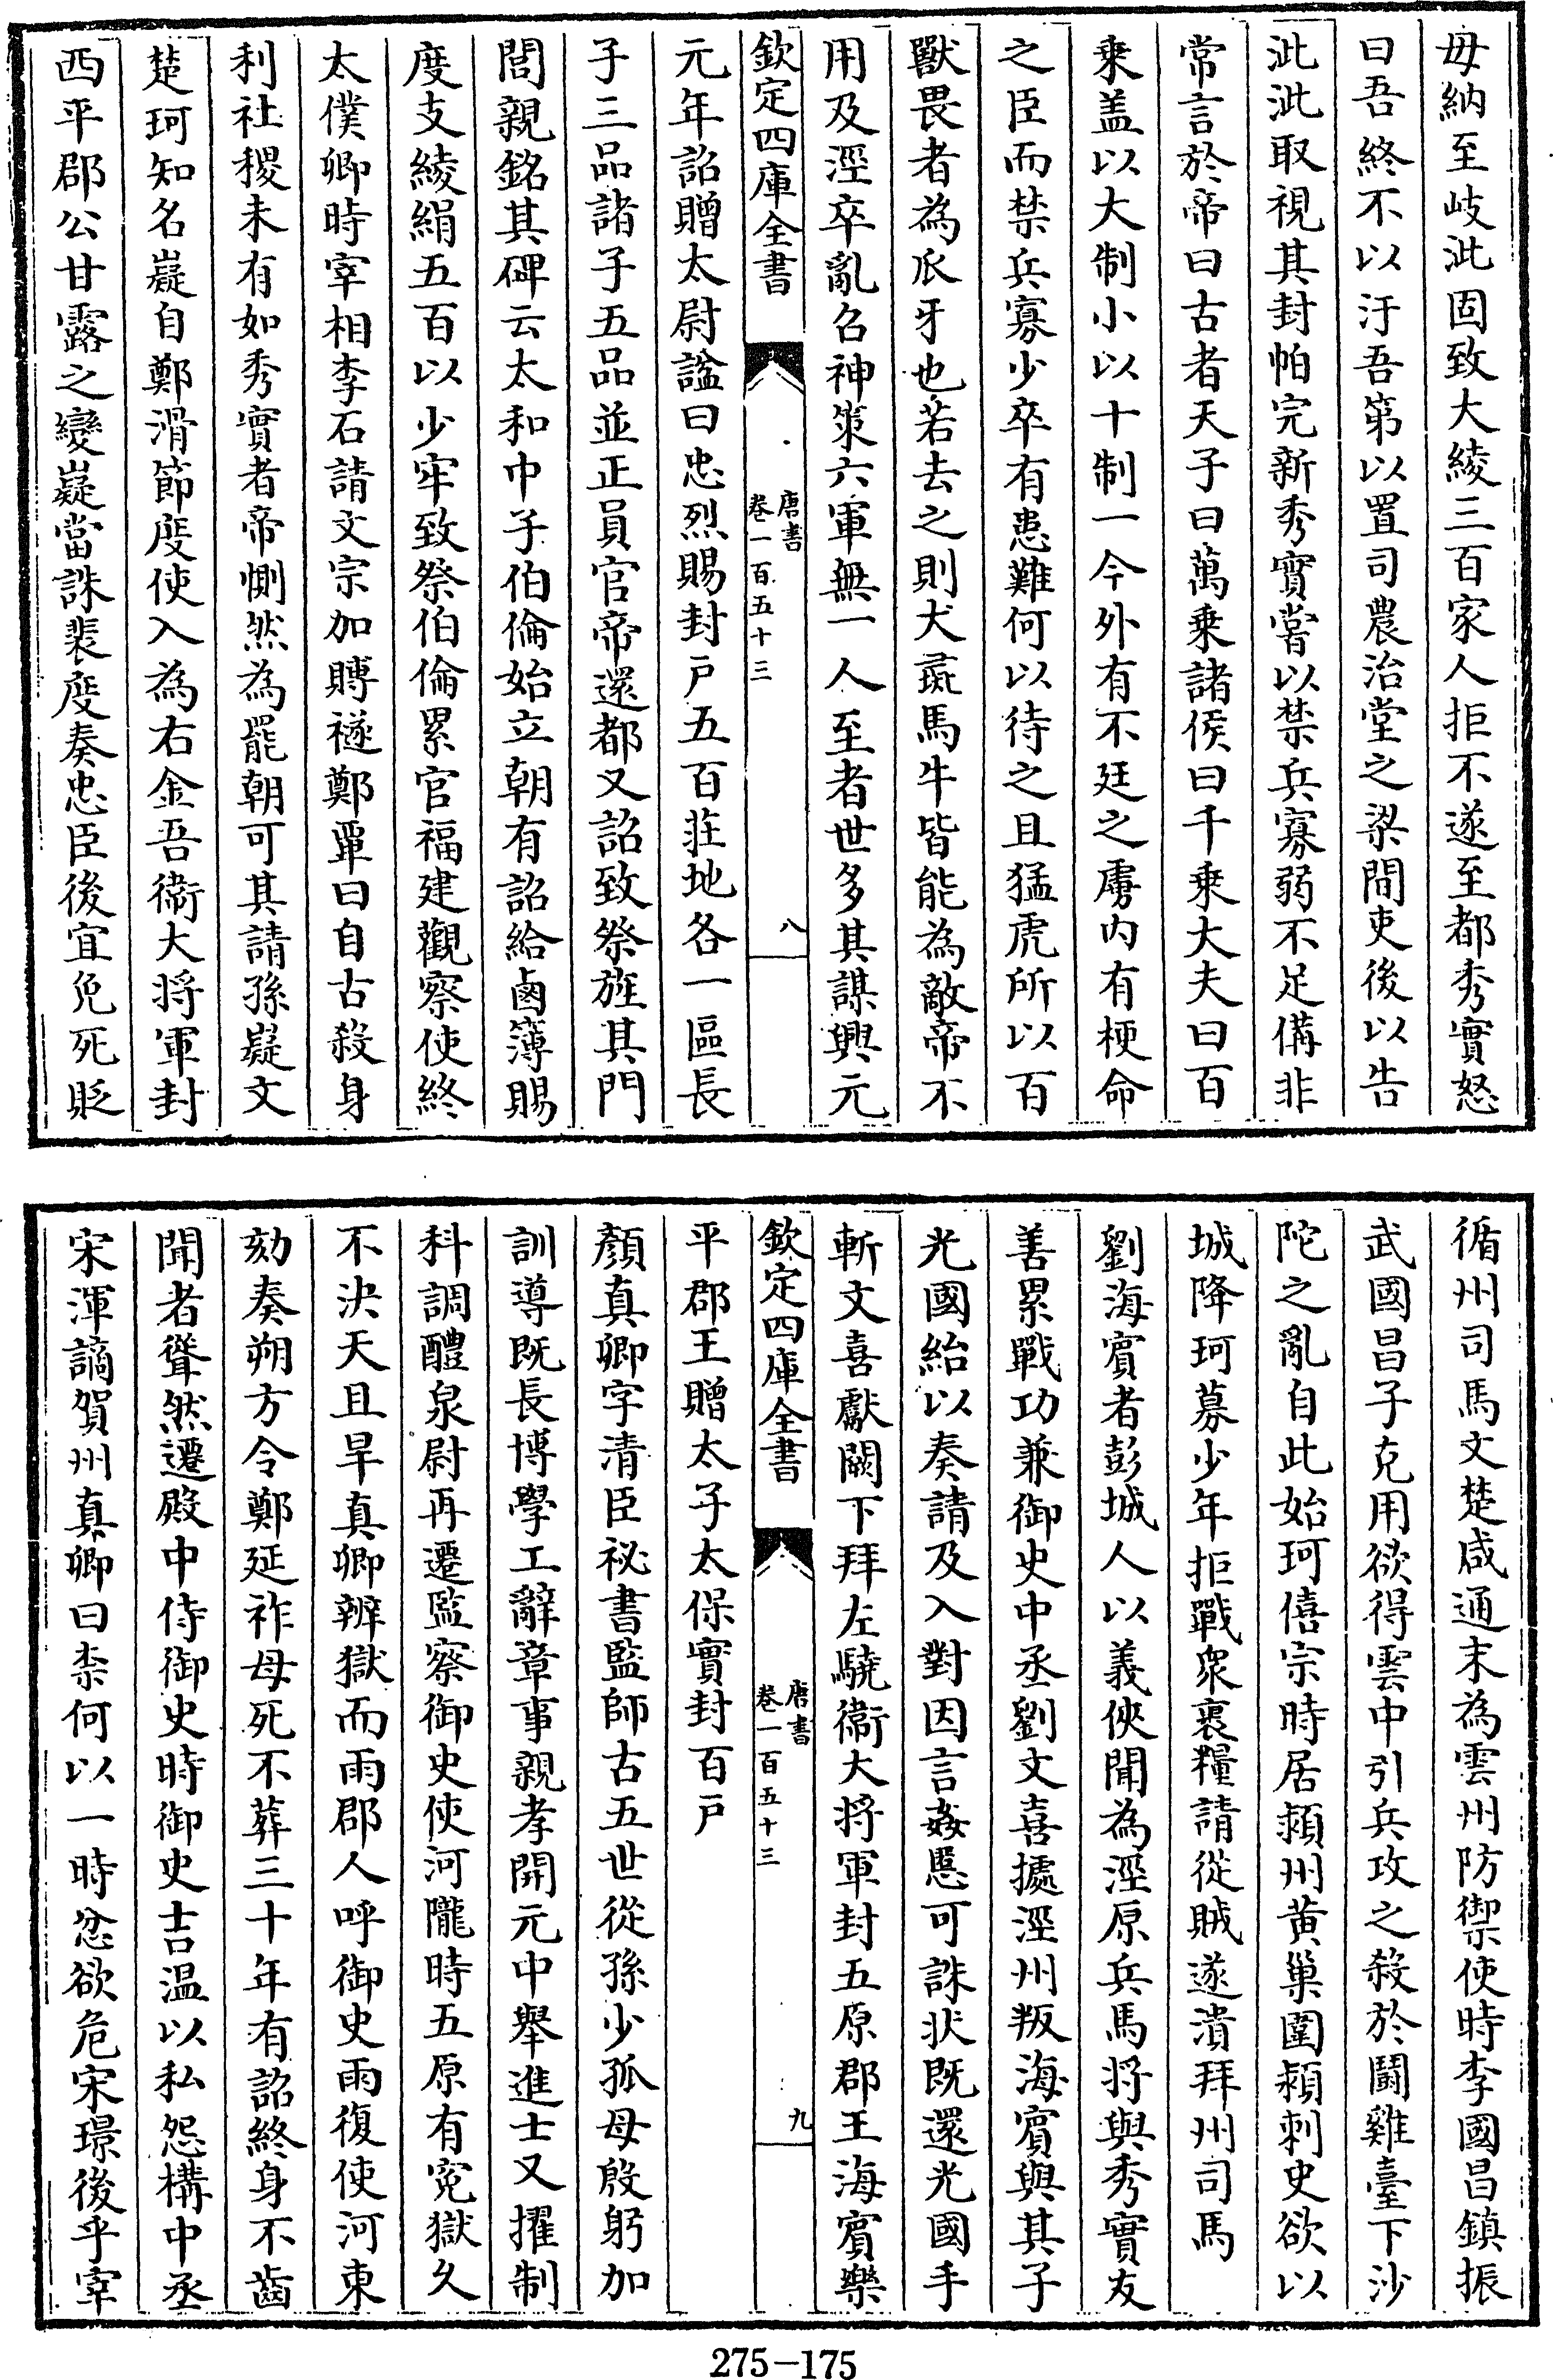 毋納至岐泚固致大綾三百家人拒不遂至都秀實怒
曰吾終不以汙吾第以置司農治堂之梁間吏後以告
泚泚取視其封帕完新秀實嘗以禁兵寡弱不足備非
常言於帝曰古者天子曰萬乘諸侯曰千乘大夫曰百
乘盖以大制小以十制一今外有不廷之虜内有梗命
之臣而禁兵寡少卒有患難何以待之且猛虎所以百
獸畏者為爪牙也若去之則犬彘馬牛皆能為敵帝不
用及涇卒亂召神策六軍無一人至者世多其謀興元
欽定四庫全書
唐書
卷一百五十三
八
元年詔贈太尉諡曰忠烈賜封戶五百莊地各一區長
子三品諸子五品並正員官帝還都又詔致祭旌其門
閭親銘其碑云太和中子伯倫始立朝有詔給鹵簿賜
度支綾絹五百以少牢致祭伯倫累官福建觀察使終
太僕卿時宰相李石請文宗加賻襚鄭覃曰自古殺身
利社稷未有如秀實者帝惻然為罷朝可其請孫嶷文
楚珂知名嶷自鄭滑節度使入為右金吾衛大將軍封
西平郡公甘露之變嶷當誅裴度奏忠臣後宜免死貶
循州司馬文楚咸通末為雲州防禦使時李國昌鎮振
武國昌子克用欲得雲中引兵攻之殺於鬪雞臺下沙
陀之亂自此始珂僖宗時居潁州黄巢圍潁刺史欲以
城降珂募少年拒戰衆裹糧請從賊遂潰拜州司馬
劉海賓者彭城人以義俠聞為涇原兵馬將與秀實友
善累戰功兼御史中丞劉文喜據涇州叛海賓與其子
光國紿以奏請及入對因言姦慝可誅狀既還光國手
斬文喜獻闕下拜左驍衞大將軍封五原郡王海賓樂
欽定四庫全書
唐書
卷一百五十三
九
平郡王贈太子太保實封百戶
顏真卿字清臣祕書監師古五世從孫少孤母殷躬加
訓導既長博學工辭章事親孝開元中舉進士又擢制
科調醴泉尉再遷監察御史使河隴時五原有寃獄久
不決天且旱真卿辨獄而雨郡人呼御史雨復使河東
劾奏朔方令鄭延祚母死不葬三十年有詔終身不齒
聞者聳然遷殿中侍御史時御史吉温以私怨構中丞
宋渾謫賀州真卿曰柰何以一時忿欲危宋璟後乎宰
275-175